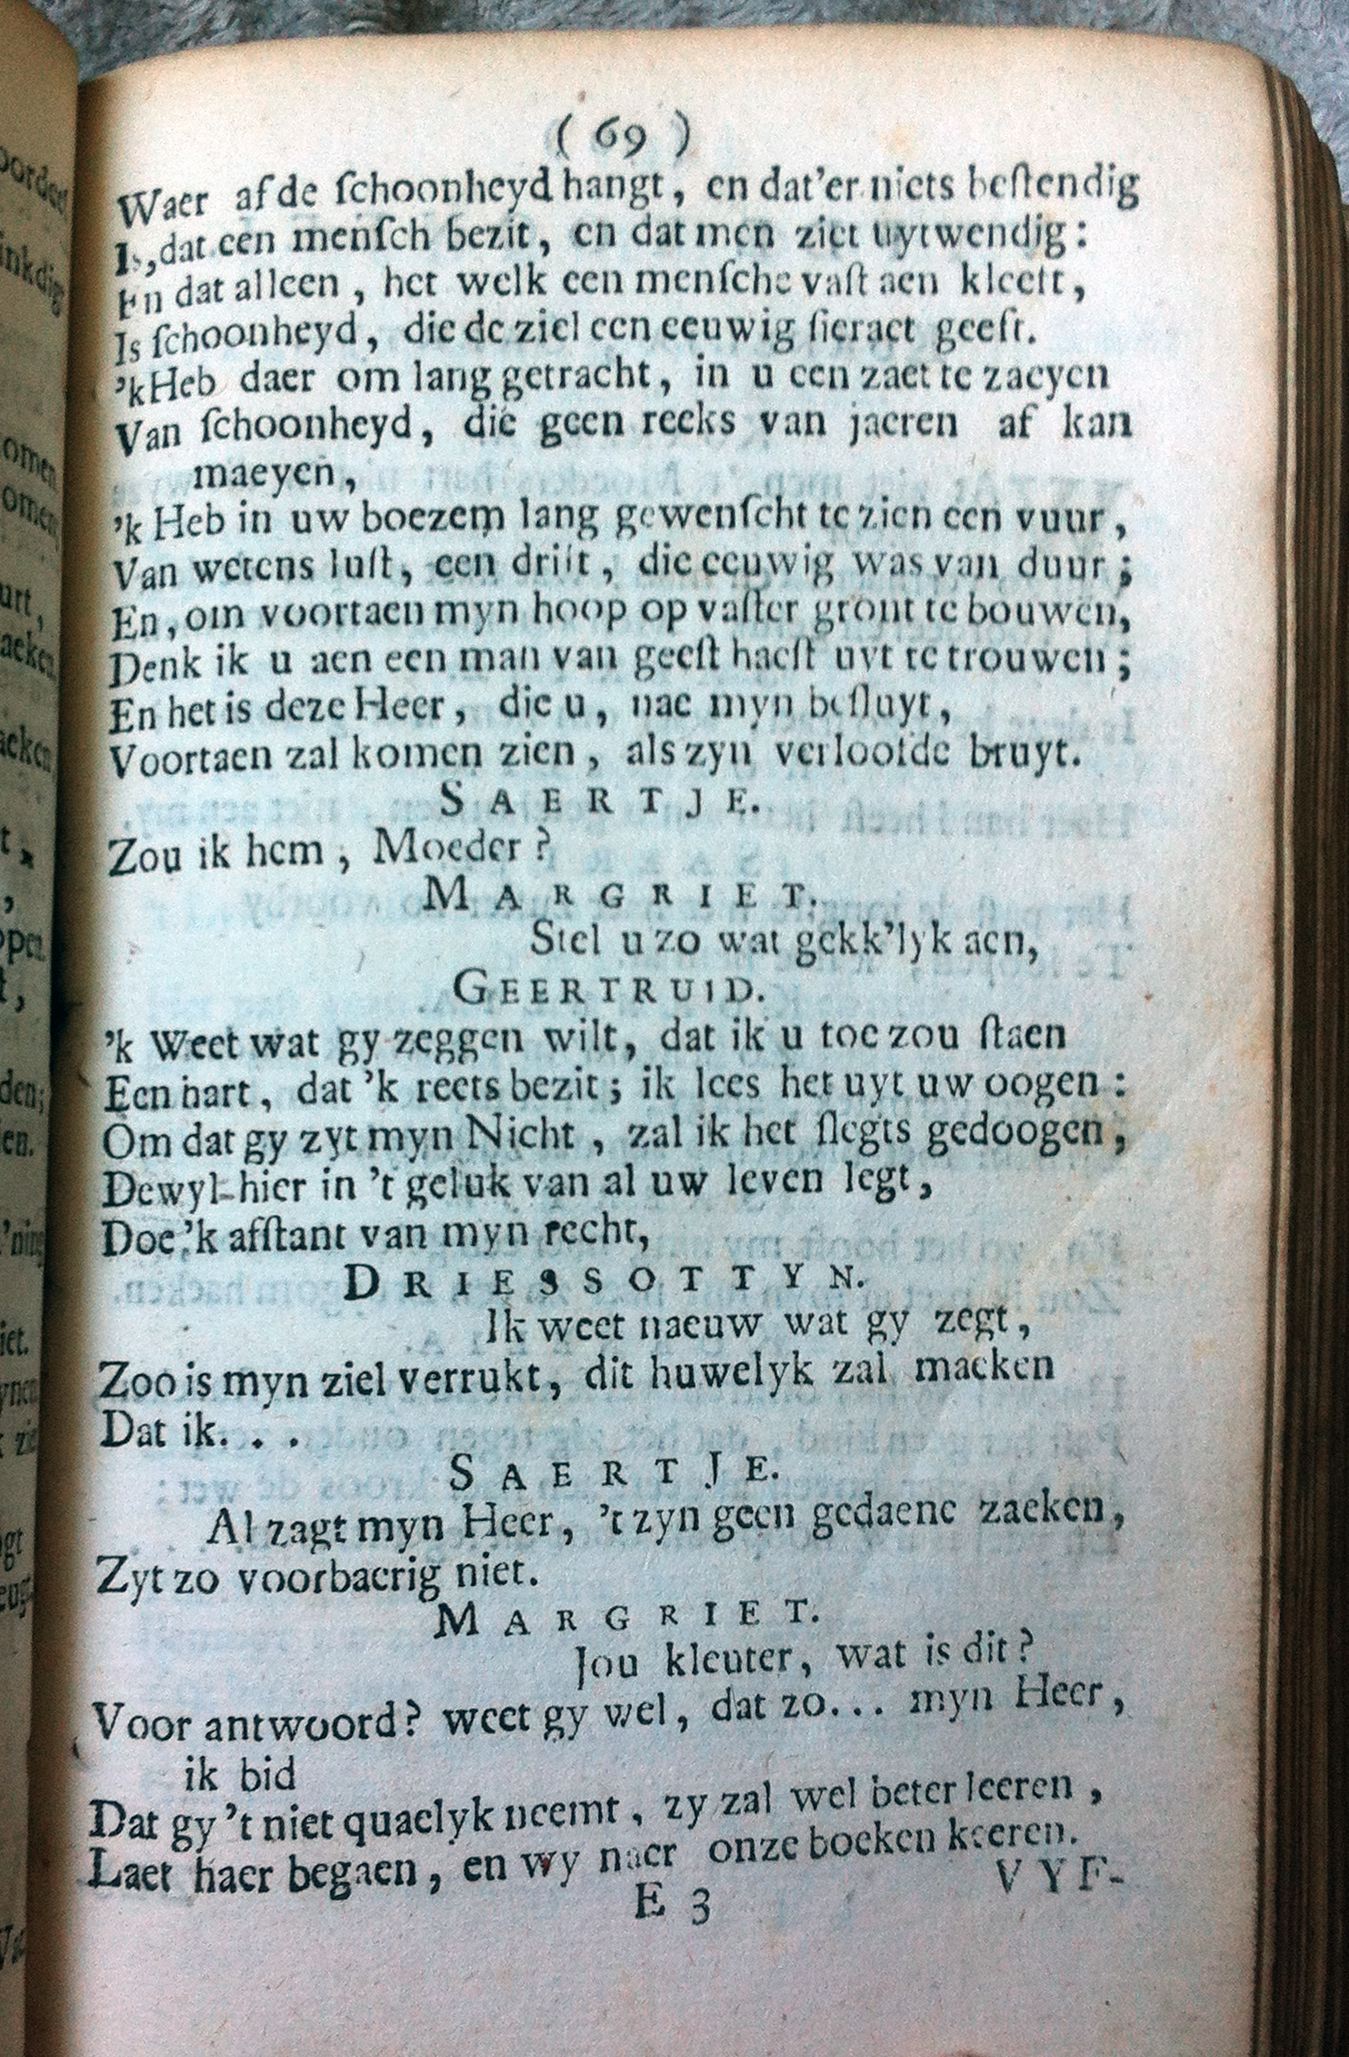 ( 69 )
Waer af de ſchoonheyd hangt, en dat'er niets beſtendig
Is, dat een menſch bezit, en dat men ziet uytwendig:
En dat alleen, het welk een menſche vaſt aen kleeft,
Is ſchoonheyd, die de ziel een eeuwig ſieraet geeft.
'k Heb daer om lang getracht, in u een zaet te zaeyen
Van ſchoonheyd, die geen reeks van jaeren af kan
maeyen,
'k Heb in uw boezem lang gewenſcht te zien een vuur,
Van wetens luſt, een drift, die eeuwig was van duur;
En, om voortaen myn hoop op vaſter gront te bouwen,
Denk ik u aen een man van geeſt haeſt uyt te trouwen;
En het is deze Heer, die u, nae myn beſluyt,
Voortaen zal komen zien, als zyn verloofde bruyt.
SAERTJE.
Zou ik hem, Moeder?
MARGRIET.
Stel u zo wat gekk'lyk aen,
GEERTRUID.
'k Weet wat gy zeggen wilt, dat ik u toe zou ſtaen
Een hart, dat 'k reets bezit; ik lees het uyt uw oogen:
Om dat gy zyt myn Nicht, zal ik het ſlegts gedoogen,
Dewyl hier in 't geluk van al uw leven legt,
Doe 'k afſtant van myn recht,
DRIESSOTTYN.
Ik weet naeuw wat gy zegt,
Zoo is myn ziel verrukt, dit huwelyk zal maeken
Dat ik...
SAERTJE.
Al zagt myn Heer, 't zyn geen gedaene zaeken,
Zyt zo voorbaerig niet.
MARGRIET.
Jou kleuter, wat is dit?
Voor antwoord? weet gy wel, dat zo... myn Heer,
ik bid
Dat gy 't niet quaelyk neemt, zy zal wel beter leeren,
Laet haer begaen, en wy naer onze boeken keeren.
E 3
VYF-